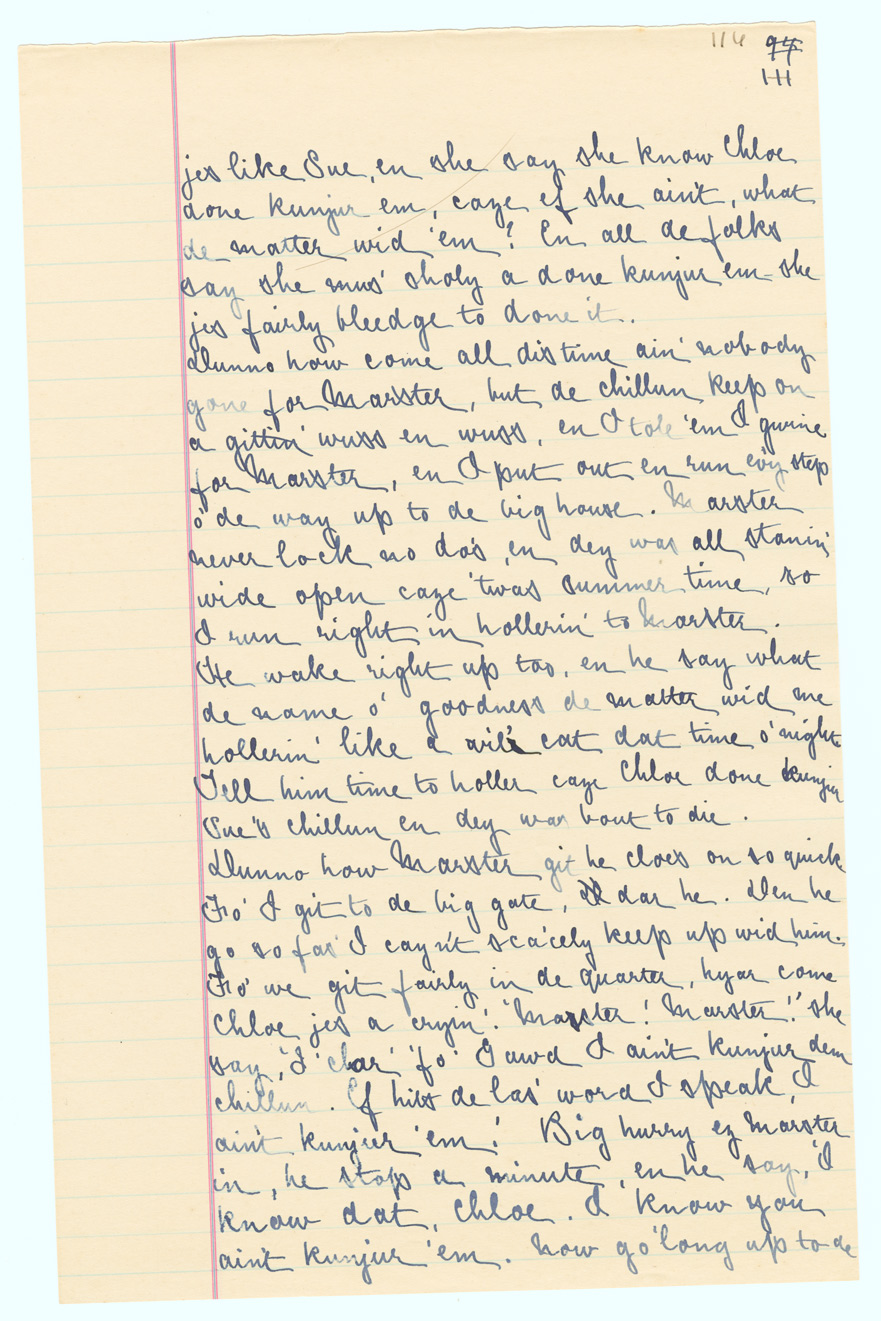 116
94
111
jes like Sue, en she say she know Chloe
done kunjur em, caze ef she ain't, what
de matter wid 'em? En all de folks
say she mus' sholy a done kunjur em - she
jes fairly bleedge to done it.
Dunno how come all dis time ain' nobody
gone for Marster, but de chillun keep on
a gittin' wuss en wuss, en I tole 'em I gwine
for Marster, en I put out en run ev'y step
o' de way up to de big house. Marster
never lock no do's, en dey was all stanin'
wide open caze 'twas summer time, so
I run right in hollerin' to Marster.
He wake right up too, en he say what
de name o' goodness de matter wid me
hollerin' like a wil' cat dat time o' night.
Tell him time to holler caze Chloe done kunjur
Sue's chillun en dey was bout to die.
Dunno how Marster git he cloes on so quick
Fo' I git to de big gate, dar he. Den he
go so fas' I cayn't sca'cely keep up wid him.
Fo' we git fairly in de quarter, hyar come
Chloe jes a cryin'. "Marster! Marster!" she
say, 'I 'clar' 'fo' Gawd I ain't kunjur dem
chillun. Ef hits de las' word I speak, I
ain't kunjur 'em! Big hurry ez Marster
in, he stop a minute, en he say, 'I
know dat, Chloe. I know you
ain't kunjur 'em. Now go 'long up to de